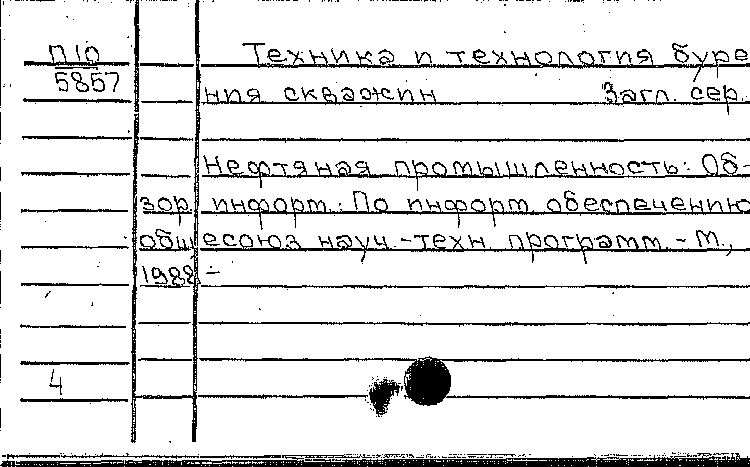 П10 Техника и технология буре
5857 ния скважин Загл. сер.
Нефтяная промышленность: Об-
зор. информ.: По информ. обеспечению
общесоюз науч.-техн. программ. - М.,
1988 -
4